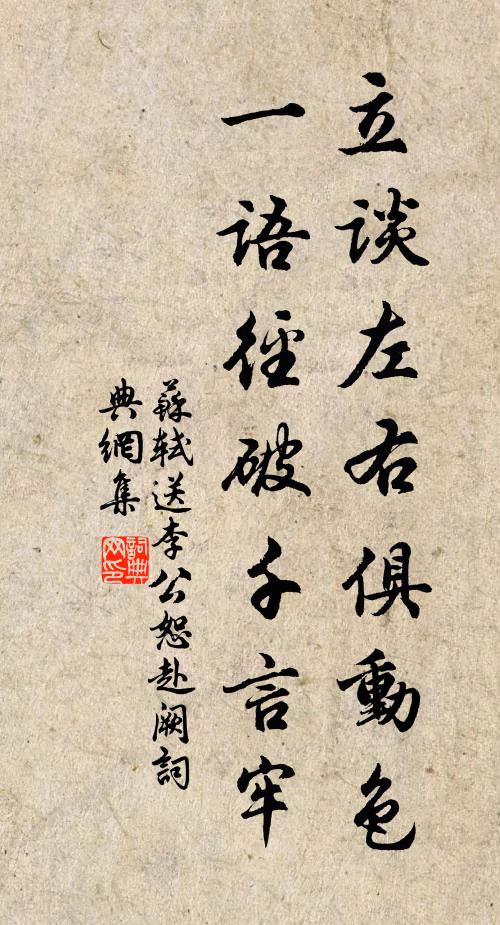 立談左右俱動色
一語徑破千言牢
蘇軾送李公恕赴闕詞
典網集
詞典
网印